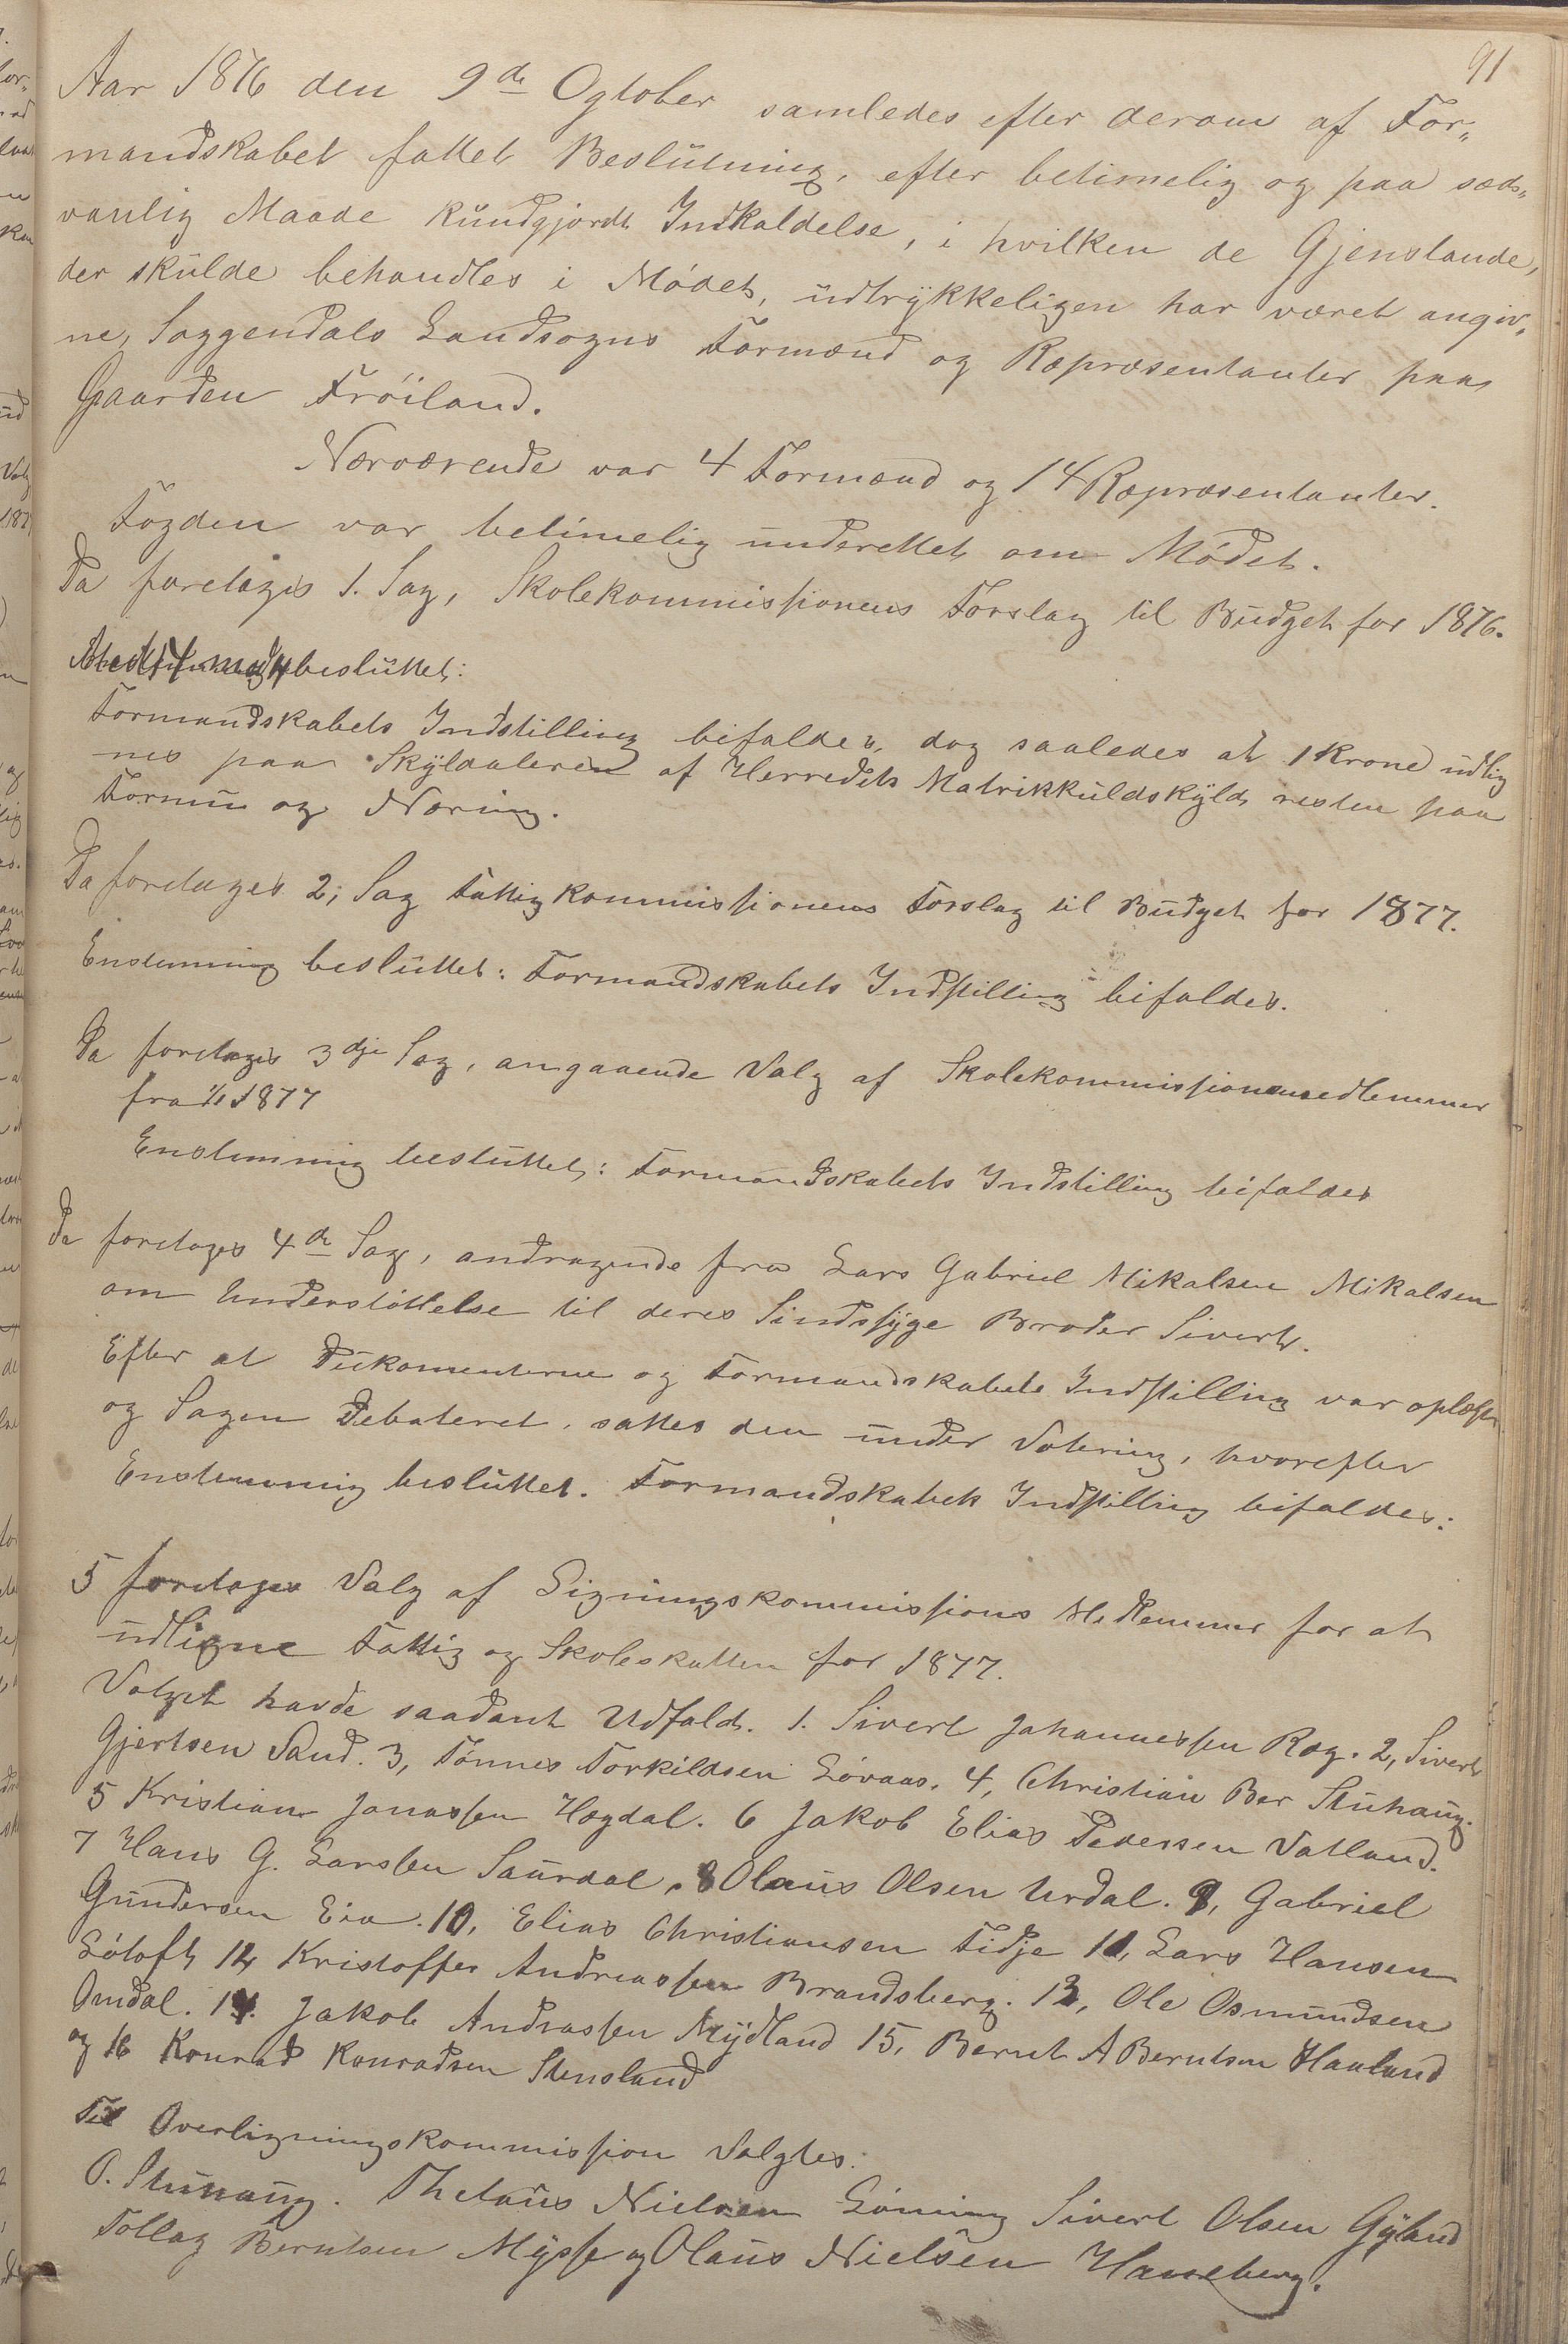 91
Aar 1876 den 9de Ogtober samledes efter derom af For„
mandskabet fattet Beslutning, efter betimelig og paa sæd„
vanlig Maade kundgjordt Indkaldelse, i hvilken de Gjenstande,
der skulde behandles i Mødet, udtrykkeligen har været angiv„
ne, Soggendals Landsogns Formænd og Repræsentanter paa
Gaarden Frøiland.
Nærværende var 4 Formænd og 14 Repræsentanter.
Fogden var betimelig underettet om Mødet.
Da foretoges 1. Sag, Skolekommissionens Forslag til Budget for 1876.
Med 14 mod 4 besluttet:
Formandskabets Indstilling bifaldes, dog saaledes at 1 Krone udlig
nes paa Skyldaleren af Herredets Matrikkuldskyld resten paa
Formu og Næring.
Da foretoges 2; Sag Fattigkommissionens Forslag til Budget for 1877.
Enstemmig besluttet: Formandskabets Indstilling bifaldes.
Da foretoges 3dje Sag, angaaende Valg af Skolekommissionsmedlemmer
fra 1/1 1877
Enstemmig besluttet: Formandskabets Indstilling bifaldes
Da foretoges 4de Sag, andragende fra Lars Gabriel Mikalsen Mikalsen
om Understøttelse til deres Sindssyge Broder Sivert.
Efter at Dukomenterne og Formandskabets Indstilling var oplæst
og Sagen Debateret, sattes den under Votering, hvorefter
Enstemmig besluttet. Formandskabets Indstilling bifaldes:
5 foretoges Valg af Ligningskommissions Medlemmer for at
udligne Fattig og Skoleskatten for 1877.
Valget havde saadant Udfald. 1. Sivert Johannessen Røg. 2, Sivert
Gjertsen Sand. 3, Tønnes Torkildsen Løvaas. 4, Christian Ber Stuhaug.
5 Kristian Jonassen Hogdal. 6 Jakob Elias Pedersen Vatland.
7 Hans G. Larssen Saurdal, 8 Olaus Olsen Urdal. 9, Gabriel
Gundersen Eia. 10, Elias Christiansen Fidje 11, Lars Hansen
Løtoft 12 Kristoffer Andreassen Brandsberg. 13, Ole Osmundsen
Omdal. 14. Jakob Andreassen Mydland 15, Bernt A Berntsen Haaland
og 16 Konrad Konradsen Stensland
Til Overligningskommission Valgtes:
O. Stuhaug. Thetaus Nielsen Løning Sivert Olsen Gyland
Tollag Berntsen Mysse og Olaus Nielsen Hauseberg.